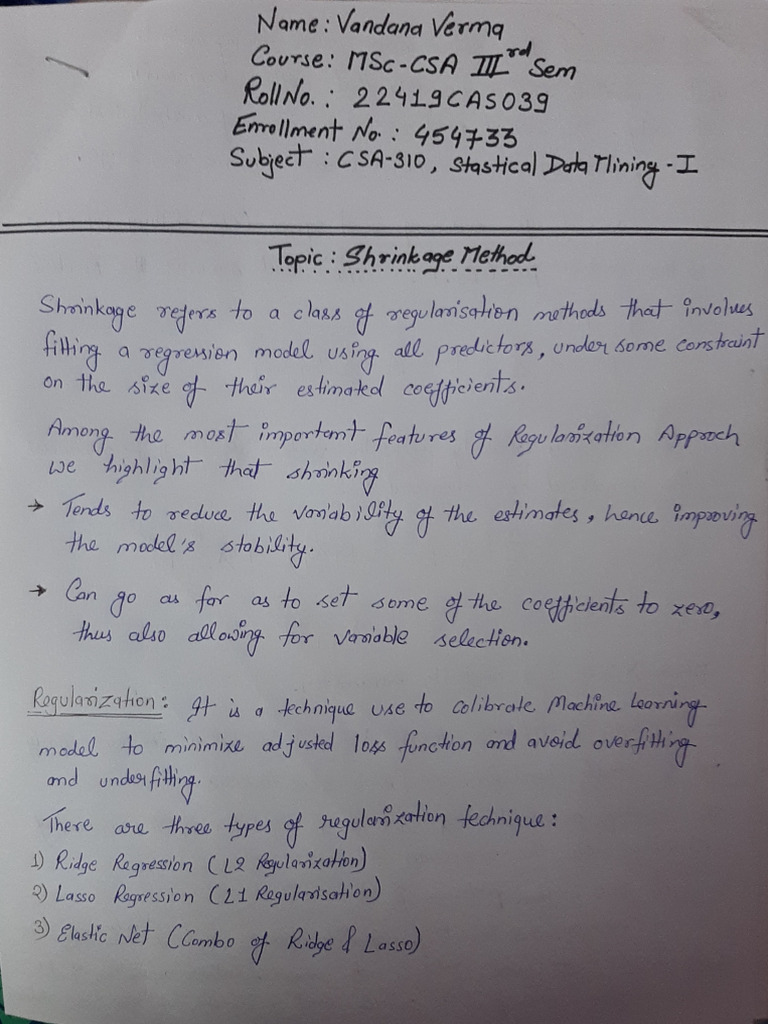 Name: Vandana Verma
Course: MSc-CSA IIIrd Sem
Roll No.: 22419CAS039
Enrollment No.: 454733
Subject: CSA-310, Stastical Data Mining-I
Topic: Shrinkage Method
Shrinkage refers to a class of regularisation methods that involves
fitting a regression model using all predictors, under some constraint
on the size of their estimated coefficients.
Among the most important features of Regularization Approch
we highlight that shrinking
→ Tends to reduce the variability of the estimates, hence improving
the model's stability.
→ Can go as far as to set some of the coefficients to zero,
thus also allowing for variable selection.
Regularization: It is a technique use to calibrate Machine Learning
model to minimize adjusted loss function and avoid overfitting
and underfitting.
There are three types of regularization technique:
1) Ridge Regression (L2 Regularization)
2) Lasso Regression (L1 Regularisation)
3) Elastic Net (Combo of Ridge & Lasso)